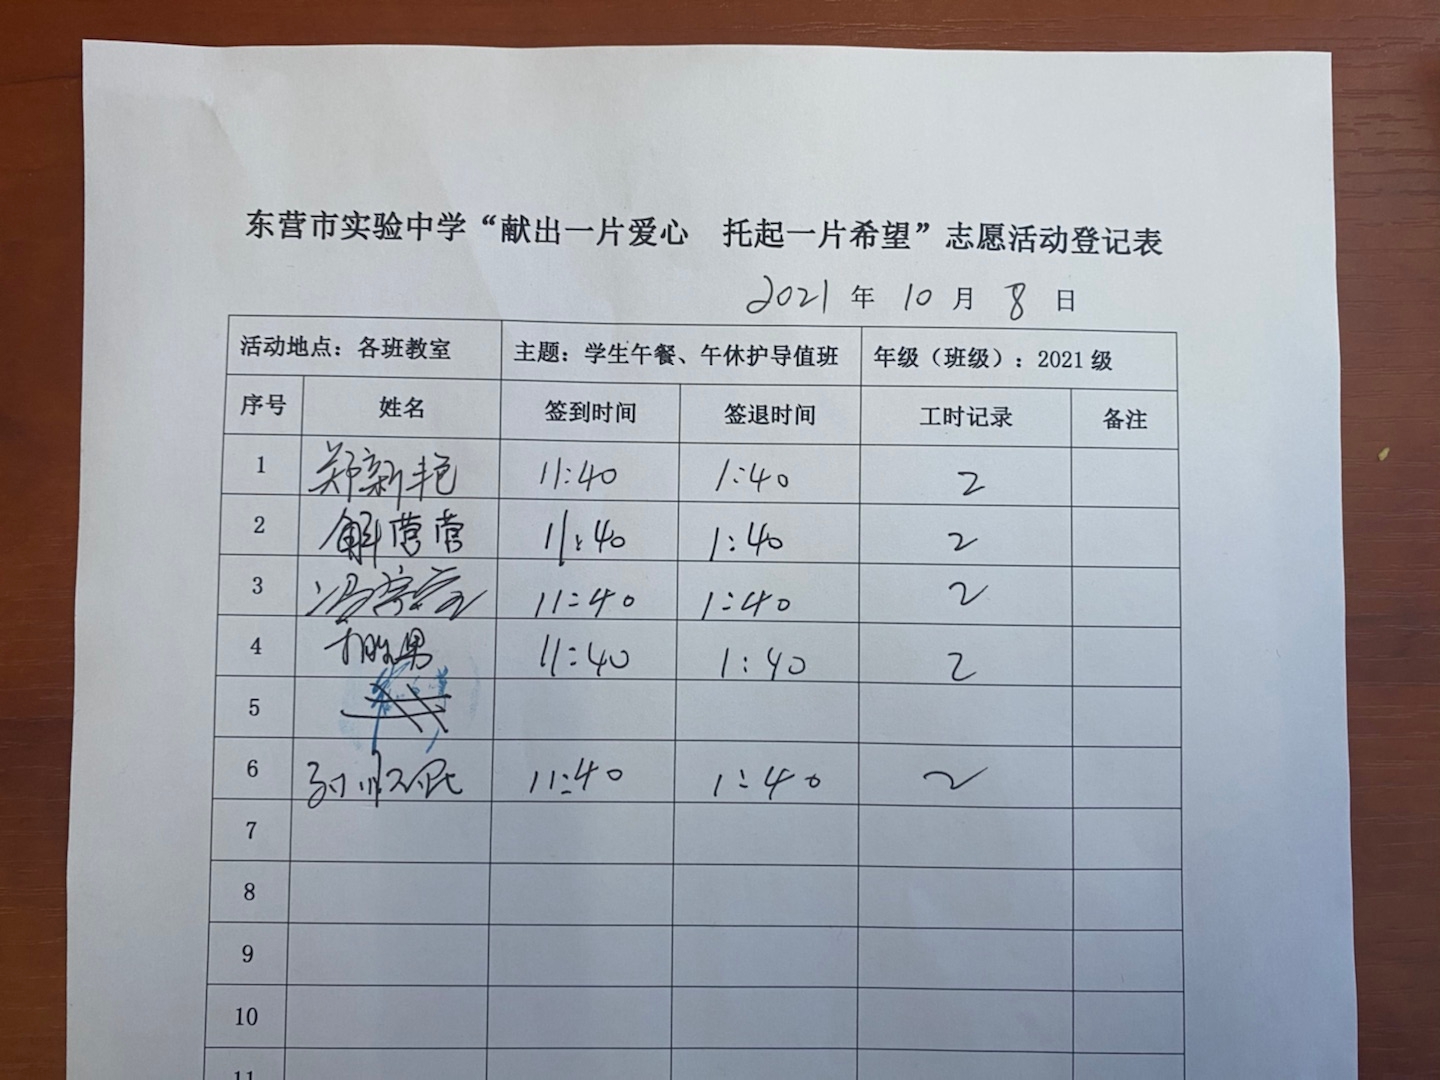 东营市实验中学“献出一片爱心 托起一片希望”志愿活动登记表
2021 年 10 月 8 日
活动地点：各班教室 主题：学生午餐、午休护导值班 年级（班级）：2021 级
序号 姓名 签到时间 签退时间 工时记录 备注
1 郑新艳 11:40 1:40 2
2 解营营 11:40 1:40 2
3 11:40 1:40 2
4 11:40 1:40 2
5
6 11:40 1:40 2
7
8
9
10
11